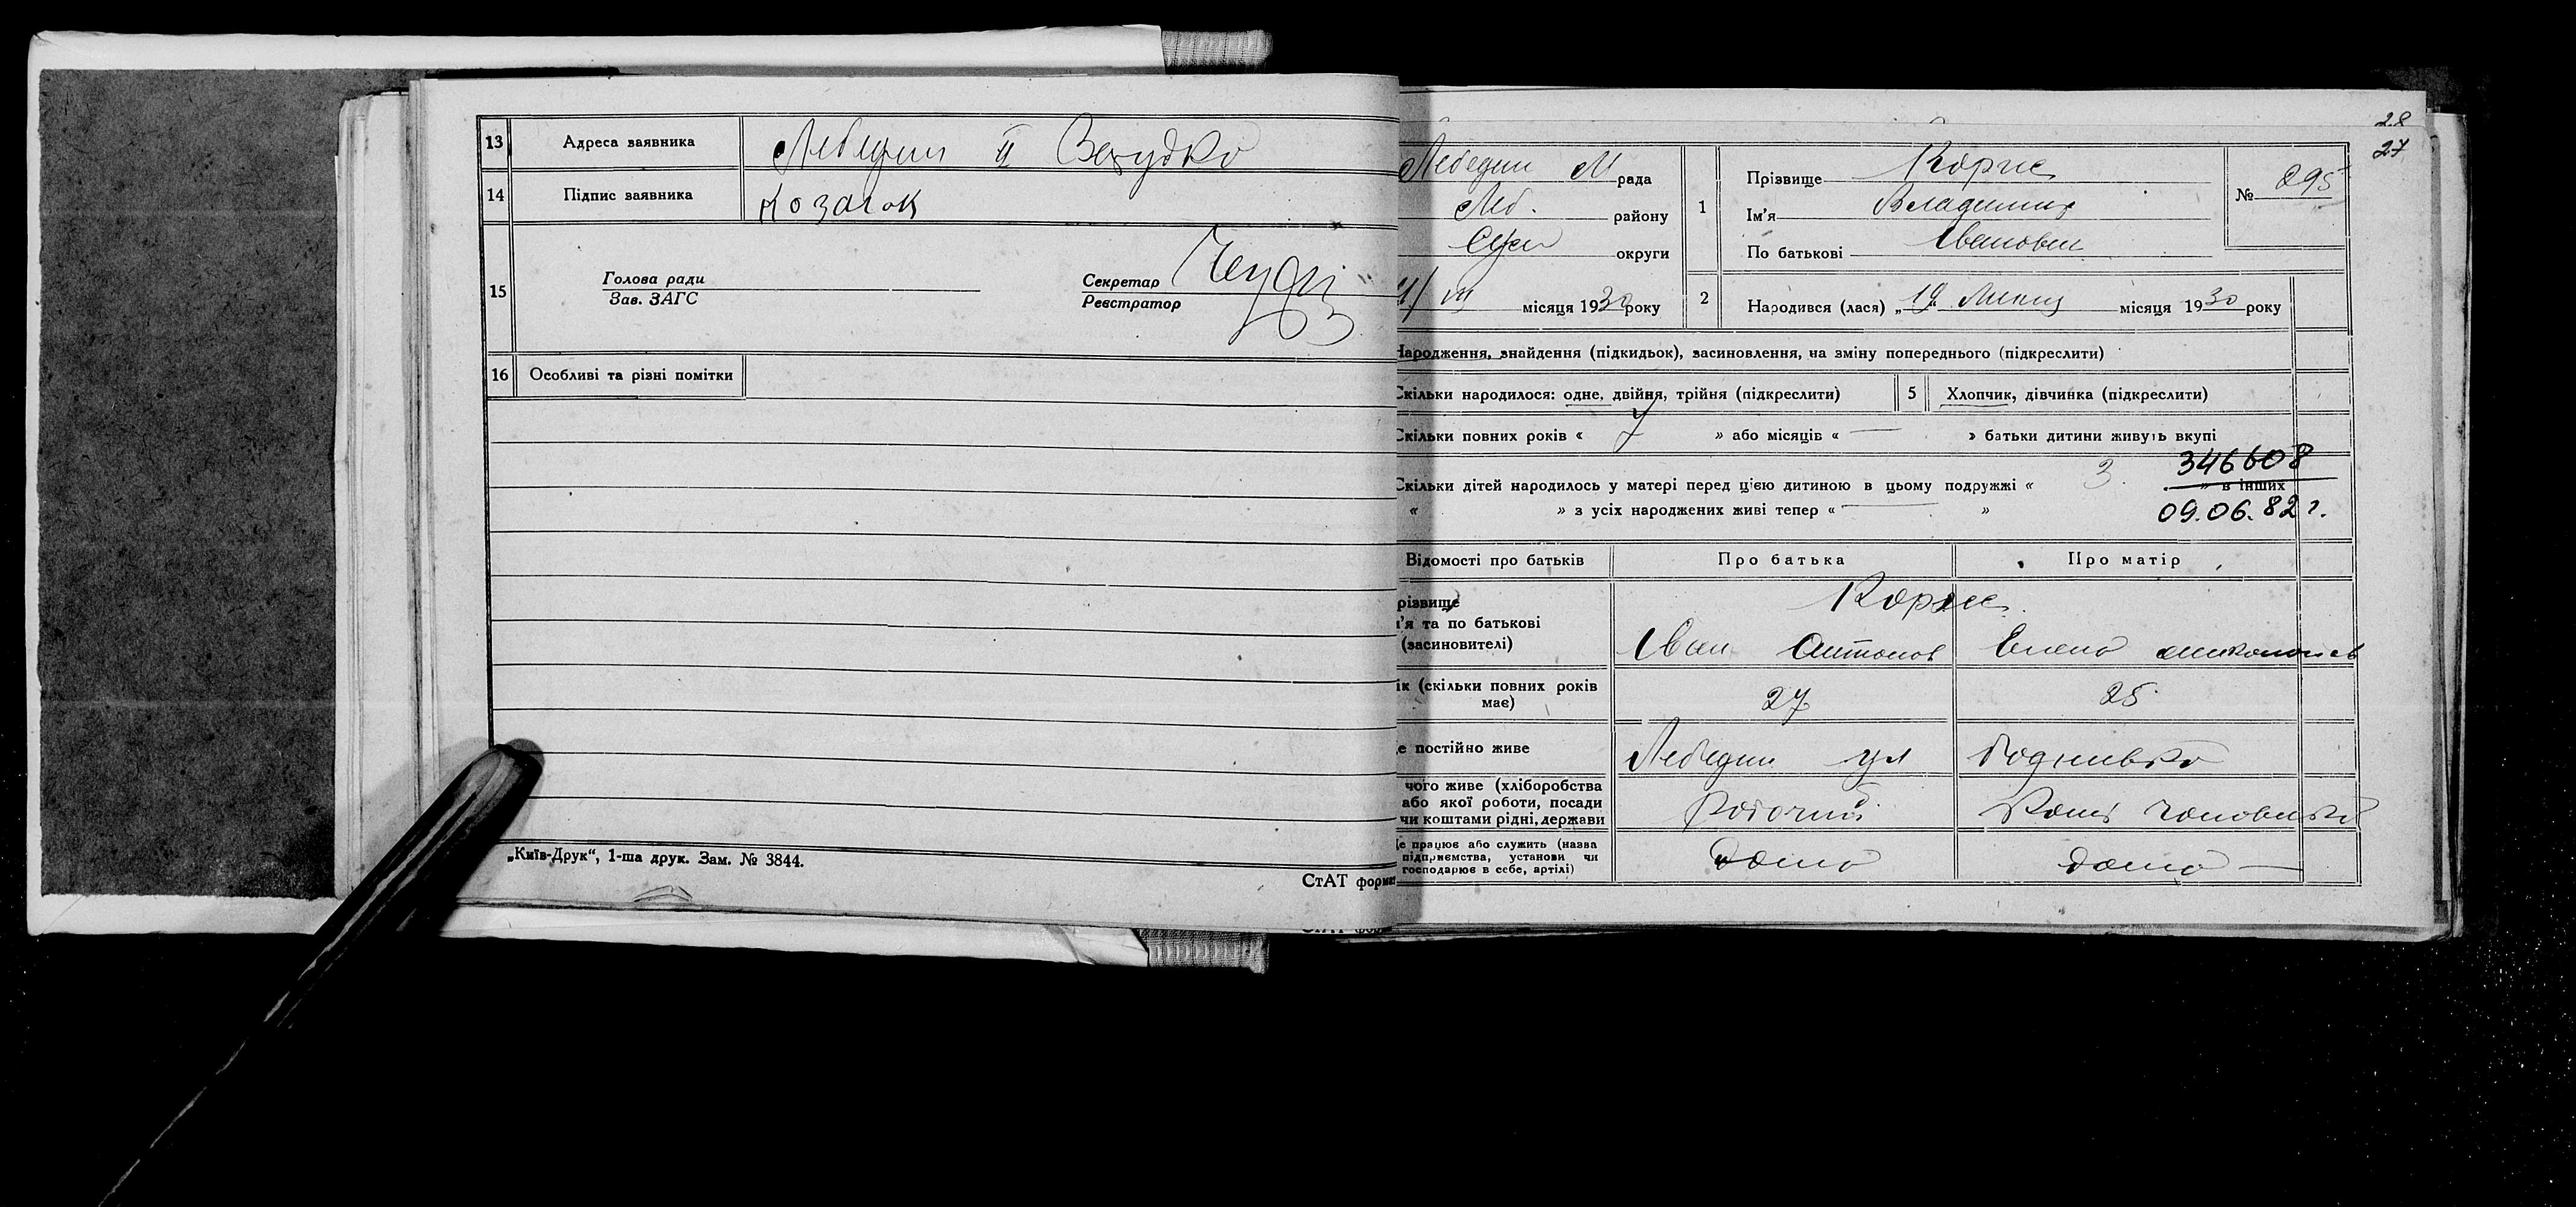 13 Адреса заявника Лебедин II
14 Підпис заявника Козачок
15 Голова ради Зав. ЗАГС Секретар Реєстратор
16 Особливі та різні помітки
„Київ-Друк“, 1-ша друк. Зам. № 3844.
СтАТ форма
28
27
Лебедин М рада
Леб. району
Сум округи
III місяця 1930 року
1 Прізвище Корж
Ім'я Владимир
По батькові Іванович
№ 295
2 Народився (лася) „19“ місяця 1930 року
Народження, знайдення (підкидьок), засиновлення, на зміну попереднього (підкреслити)
Скільки народилося: одне, двійня, трійня (підкреслити) 5 Хлопчик, дівчинка (підкреслити)
Скільки повних років « 7 » або місяців « — » батьки дитини живуть вкупі
346608
Скільки дітей народилось у матері перед цією дитиною в цьому подружжі « 3 » в інших
« » з усіх народжених живі тепер « — »
09.06.82 г.
Відомості про батьків Про батька Про матір
різвище
м'я та по батькові
(засиновителі)
Корж
Іван Антонов Елена
ік (скільки повних років має) 27 25
е постійно живе Лебедин ул
чого живе (хліборобства
або якої роботи, посади
чи коштами рідні, держави
Робочий
Де працює або служить (назва
підприємства, установи чи
господарює в себе, артілі)
дома дома —